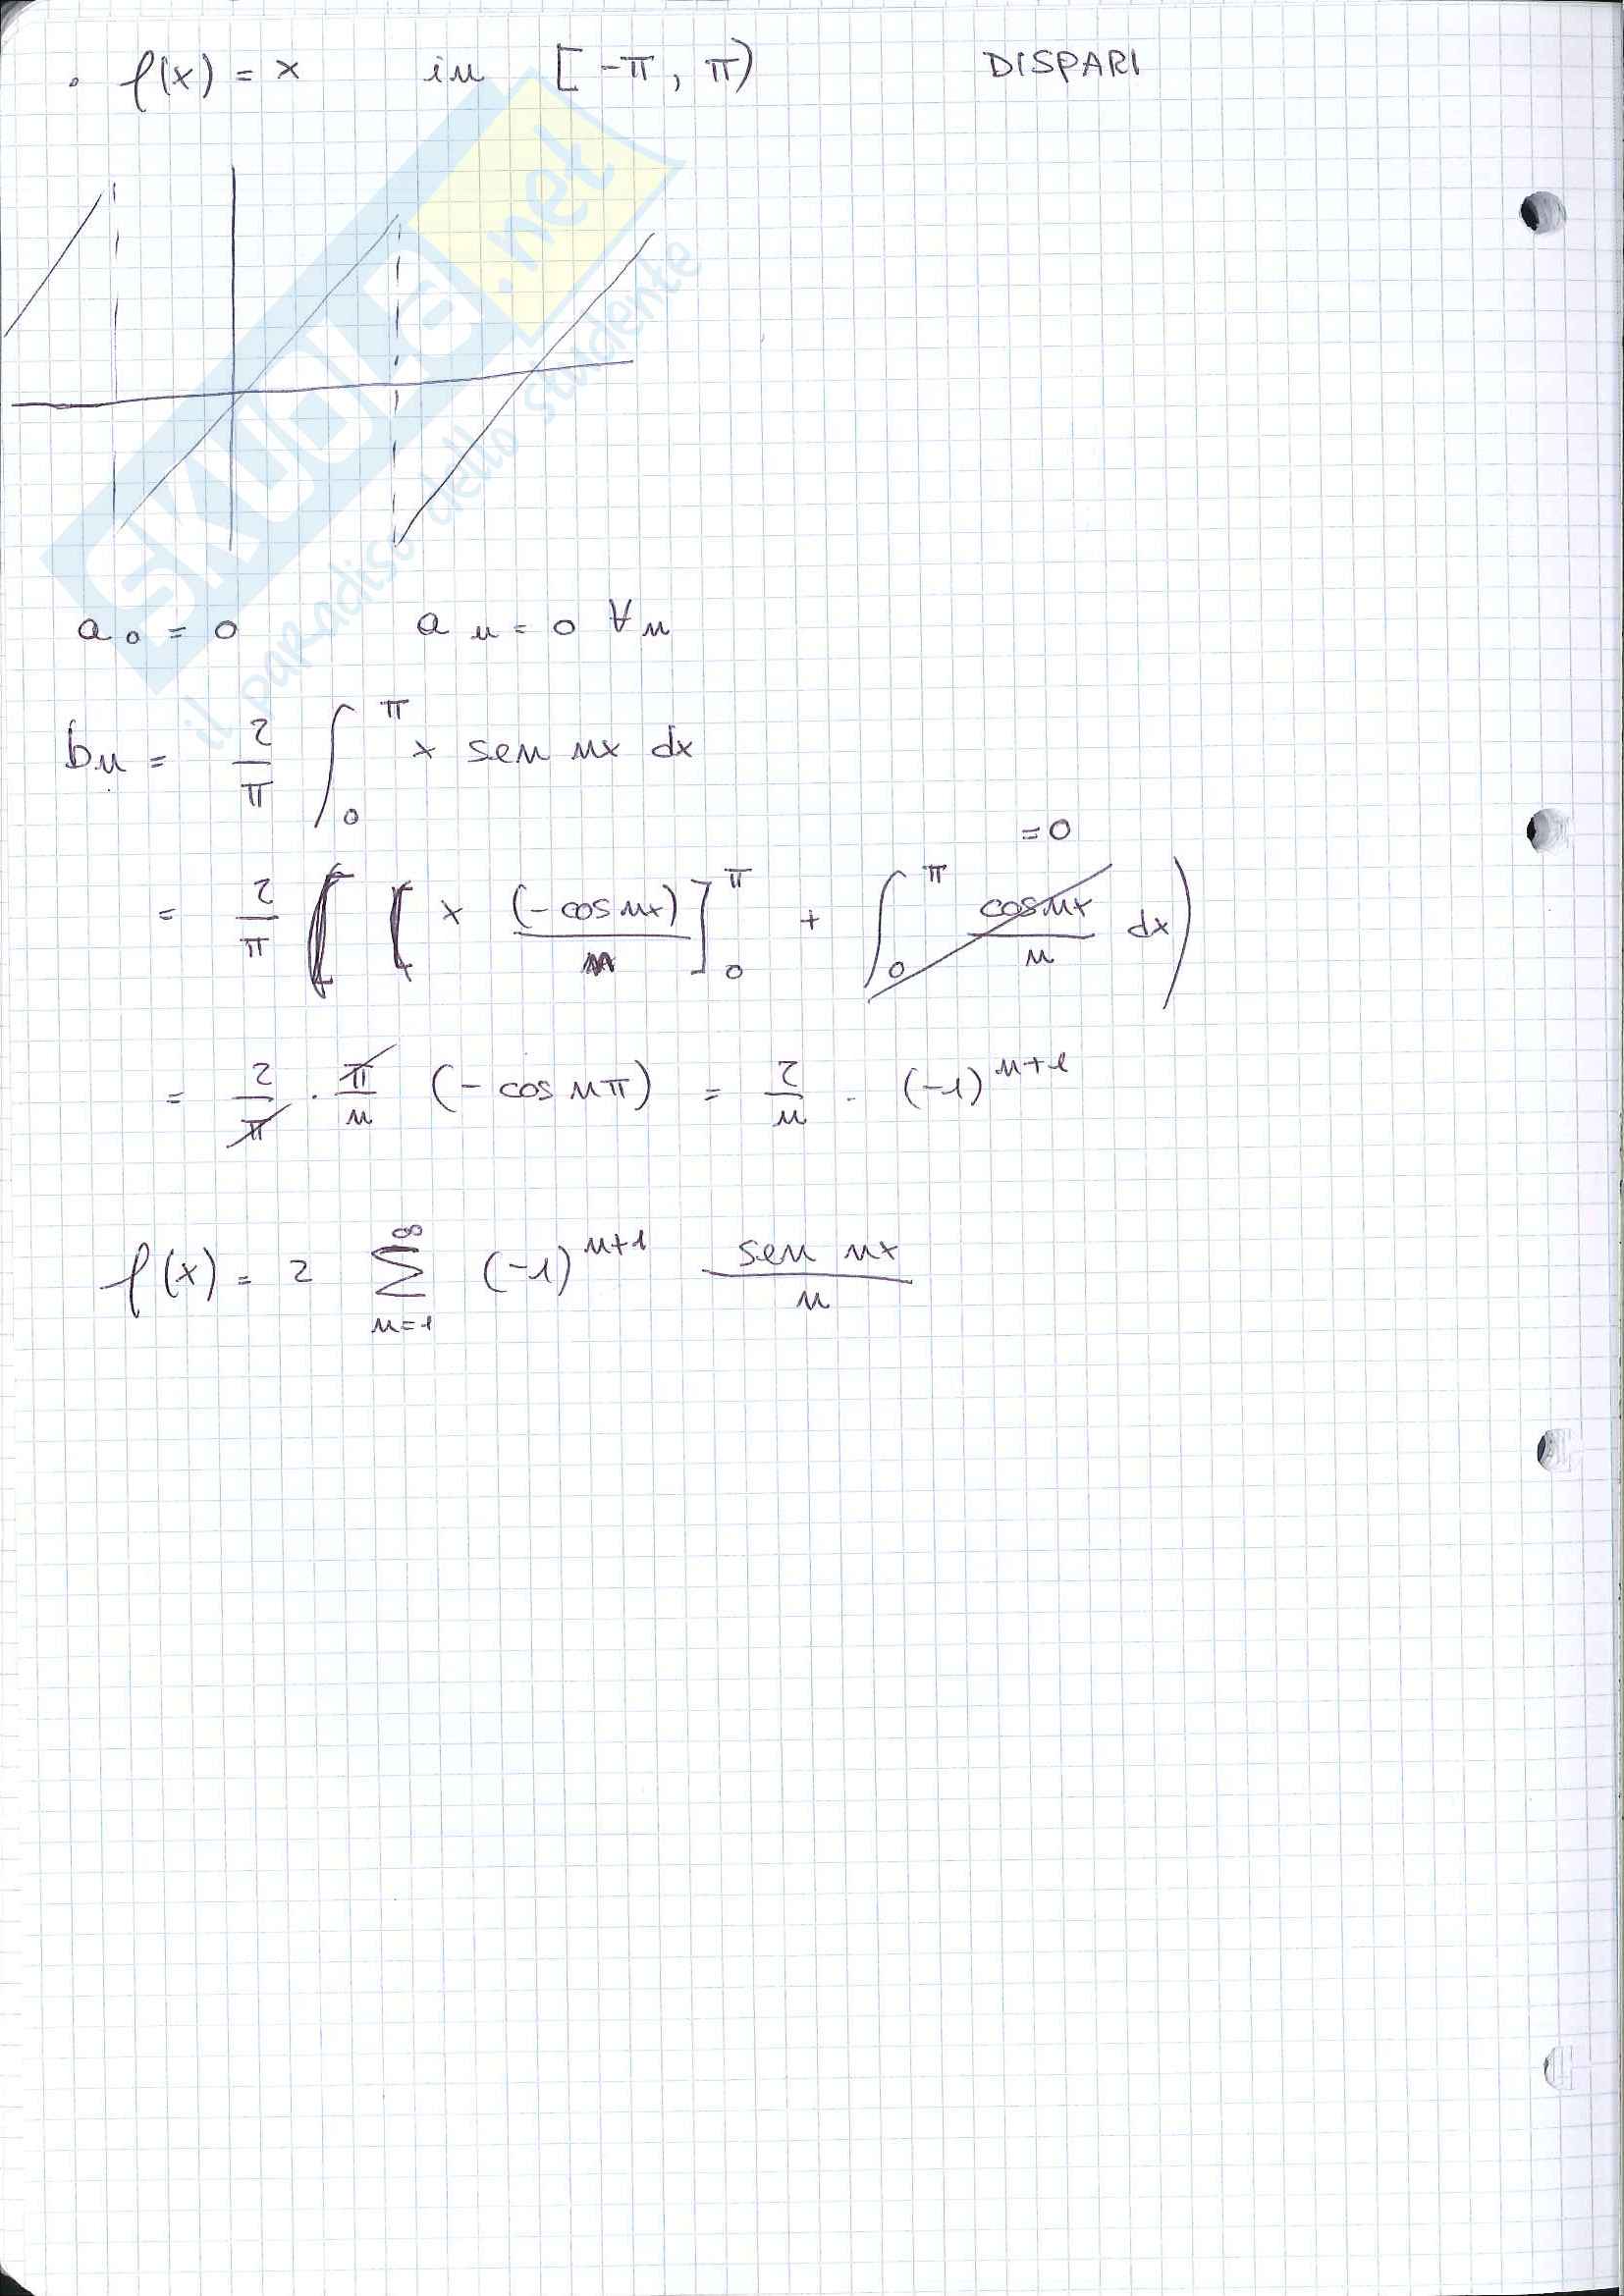 • f(x) = x in [-π, π) DISPARI
SKUOLA.net
il paradiso dello studente
a₀ = 0 aₙ = 0 ∀n
bₙ = 2/π ∫₀^π x sen nx dx
= 2/π ( [ x (-cos nx)/n ]₀^π + ∫₀^π cos nx/n dx ) = 0
= 2/π · π/n (-cos nπ) = 2/n · (-1)^(n+1)
f(x) = 2 ∑_(n=1)^∞ (-1)^(n+1) sen nx / n